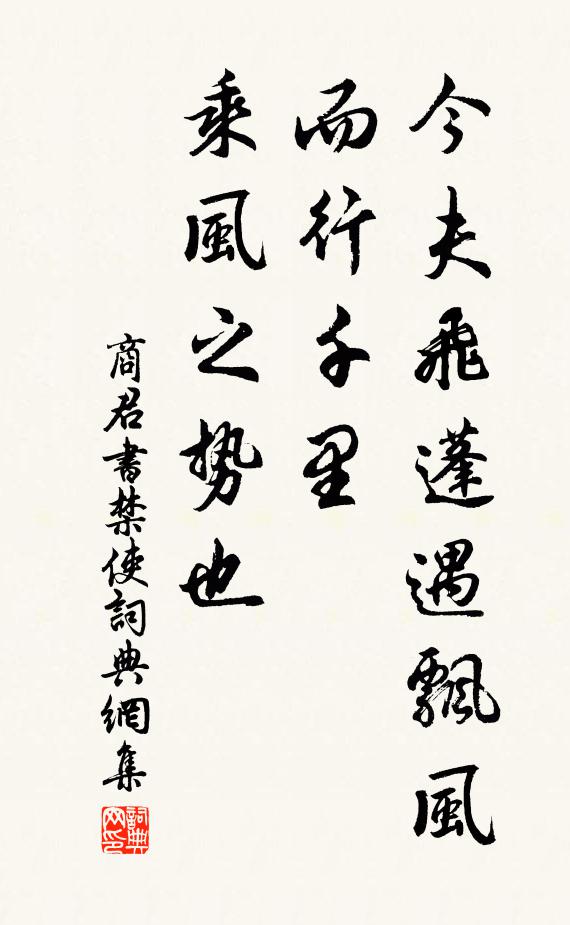 今夫飛蓬遇飄風
而行千里
乘風之勢也
商君書禁使詞典網集
詞典网印